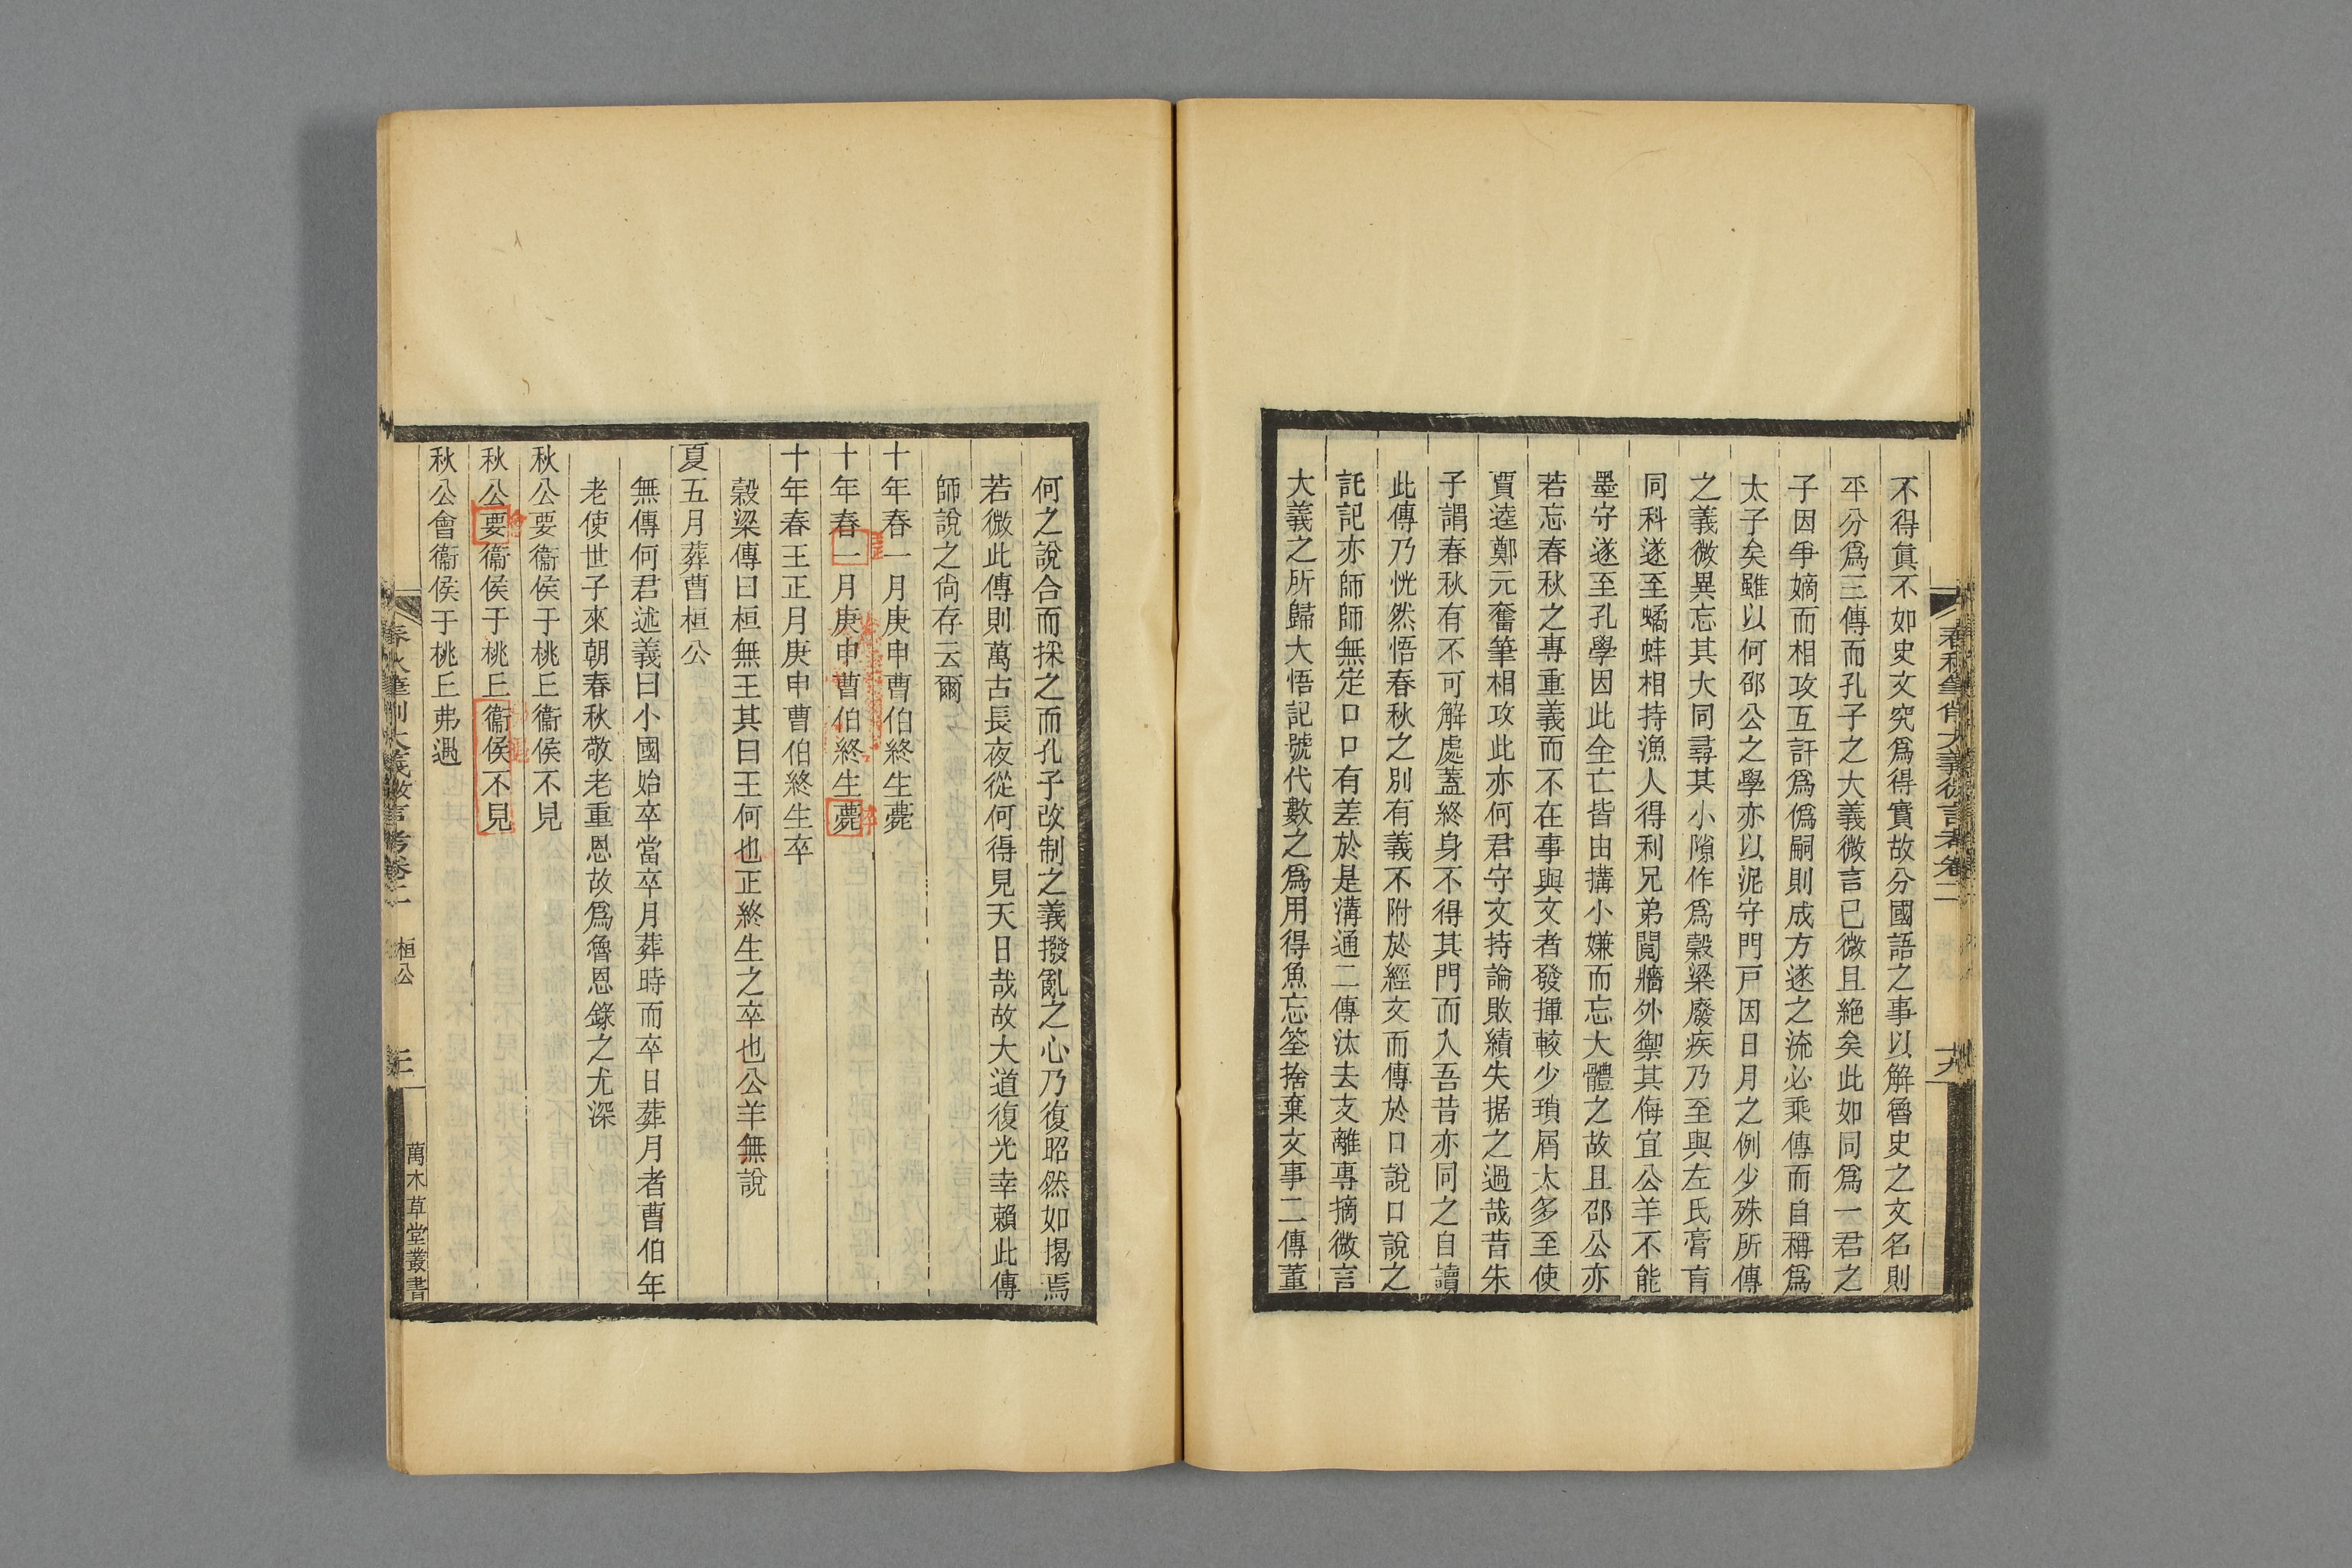 不得眞不如史文究爲得實故分國語之事以解魯史之文名則
平分爲三傳而孔子之大義微言已微且絶矣此如同爲一君之
子因爭嫡而相攻互訐爲僞嗣則成方遂之流必乘傳而自稱爲
太子矣雖以何邵公之學亦以泥守門戸因日月之例少殊所傳
之義微異忘其大同尋其小隙作爲穀梁廢疾乃至與左氏膏肓
同科遂至蟠蚌相持漁人得利兄弟鬩牆外禦其侮宜公羊不能
墨守遂至孔學因此全亡皆由搆小嫌而忘大體之故且邵公亦
若忘春秋之專重義而不在事與文者發揮較少瑣屑太多至使
賈逵鄭元奮筆相攻此亦何君守文持論敗績失据之過哉昔朱
子謂春秋有不可解處蓋終身不得其門而入吾昔亦同之自讀
此傳乃恍然悟春秋之別有義不附於經文而傳於口說口說之
託記亦師師無定口口有差於是溝通二傳汰去支離專摘微言
大義之所歸大悟記號代數之爲用得魚忘筌捨棄文事二傳董
春秋筆削大義微言考卷二
何之說合而採之而孔子改制之義撥亂之心乃復昭然如揭焉
若微此傳則萬古長夜從何得見天日哉故大道復光幸賴此傳
師說之尙存云爾
十年春一月庚申曹伯終生薨
十年春一月庚申曹伯終生薨
十年春王正月庚申曹伯終生卒
穀梁傳曰桓無王其曰王何也正終生之卒也公羊無說
夏五月葬曹桓公
無傳何君述義曰小國始卒當卒月葬時而卒日葬月者曹伯年
老使世子來朝春秋敬老重恩故爲魯恩錄之尤深
秋公要衞侯于桃丘衞侯不見
秋公要衞侯于桃丘衞侯不見
秋公會衞侯于桃丘弗遇
春秋筆削大義微言考卷二 桓公
萬木草堂叢書